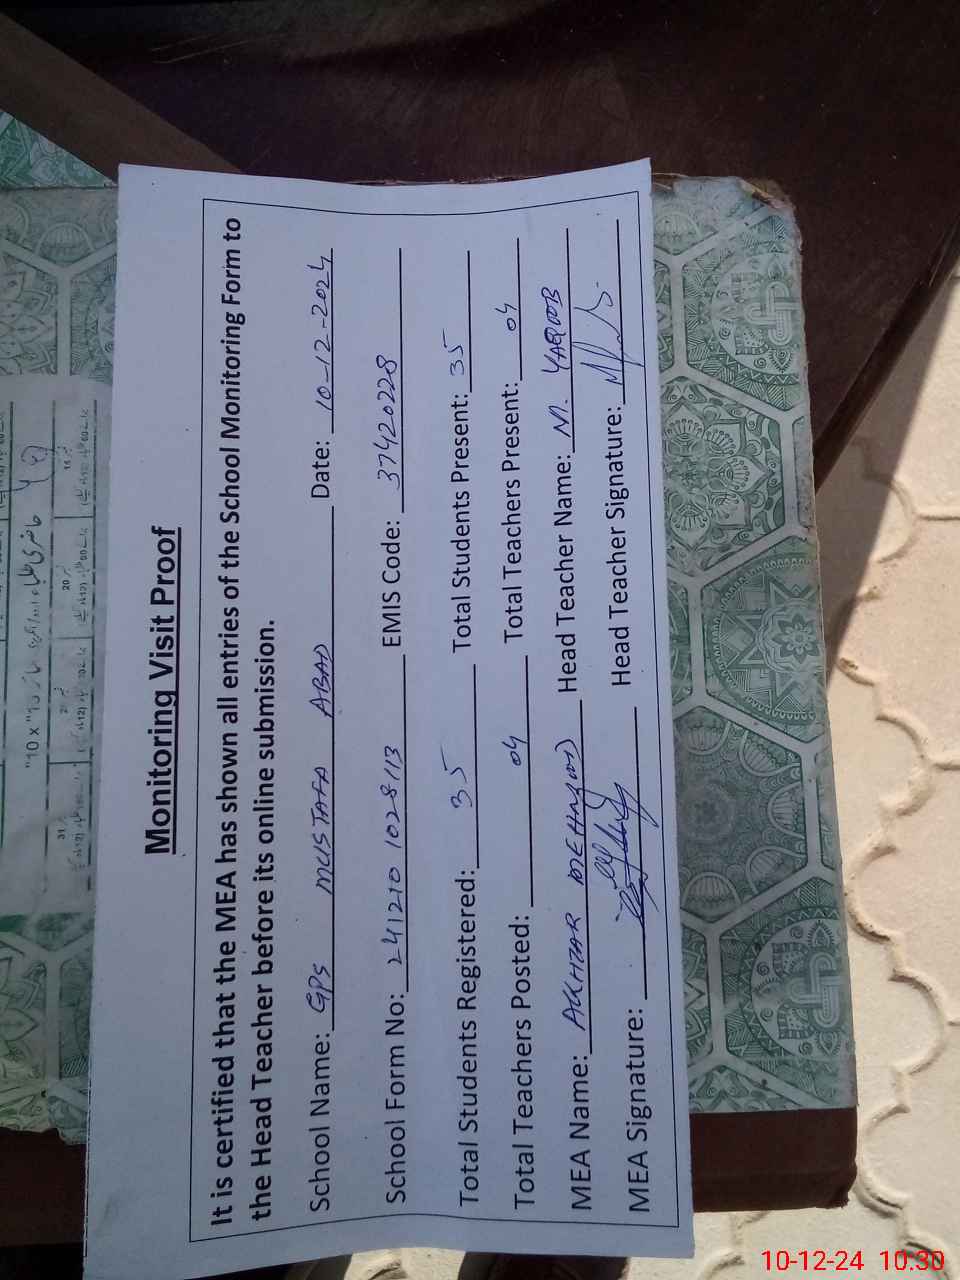 Monitoring Visit Proof
It is certified that the MEA has shown all entries of the School Monitoring Form to
the Head Teacher before its online submission.
School Name: GPS MUSTAFA ABAD Date: 10-12-2024
School Form No: 241210 1028113 EMIS Code: 37420228
Total Students Registered: 35 Total Students Present: 35
Total Teachers Posted: 04 Total Teachers Present: 04
MEA Name: Head Teacher Name: M. YAQOOB
MEA Signature: Head Teacher Signature:
10-12-24 10.30